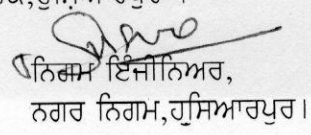 ਨਿਗਮ ਇੰਜੀਨਿਅਰ,
ਨਗਰ ਨਿਗਮ,ਹੁਸਿਆਰਪੁਰ।